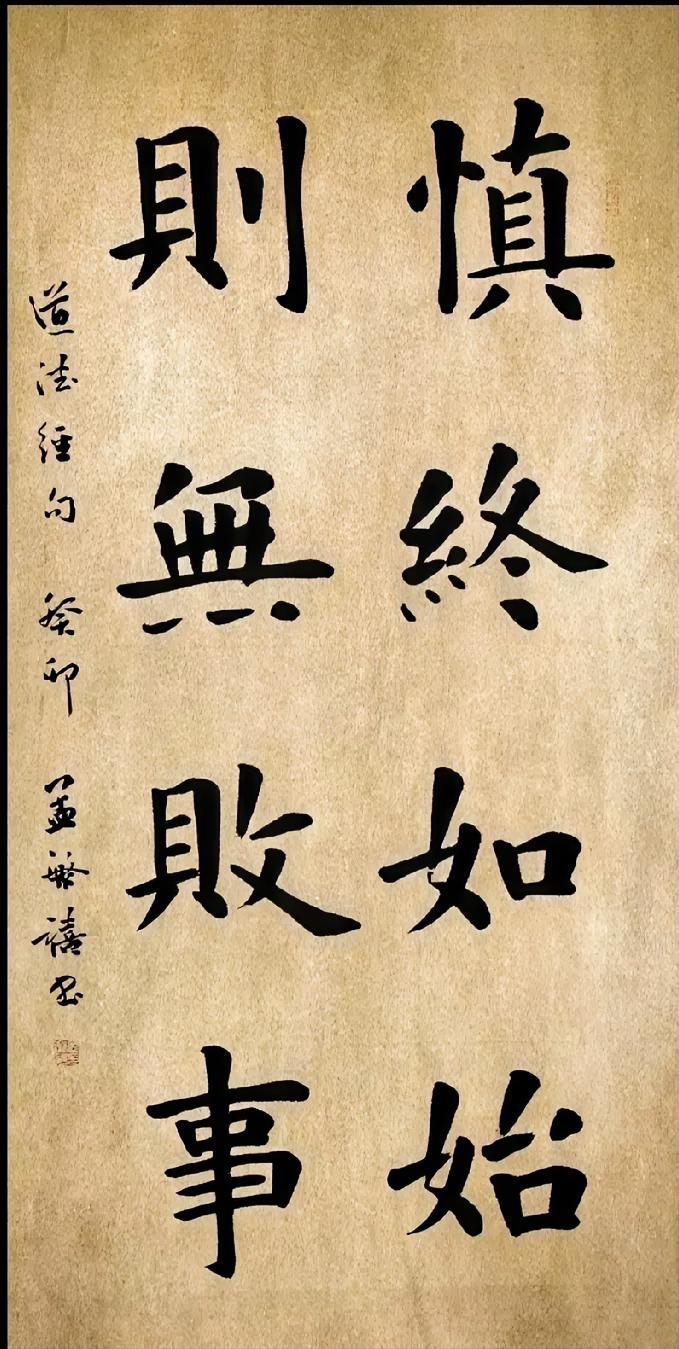 慎終如始
則無敗事
道德經句 癸卯 孟繁禧書